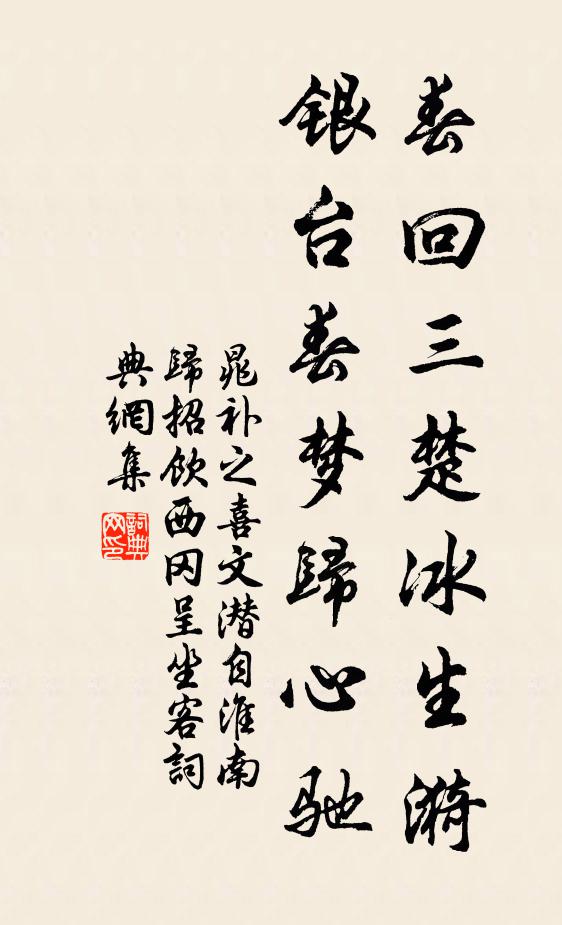 春回三楚冰生漪
银台春梦歸心驰
晁补之喜文潜自淮南
歸招饮西冈呈坐客詞
典網集
詞典网印